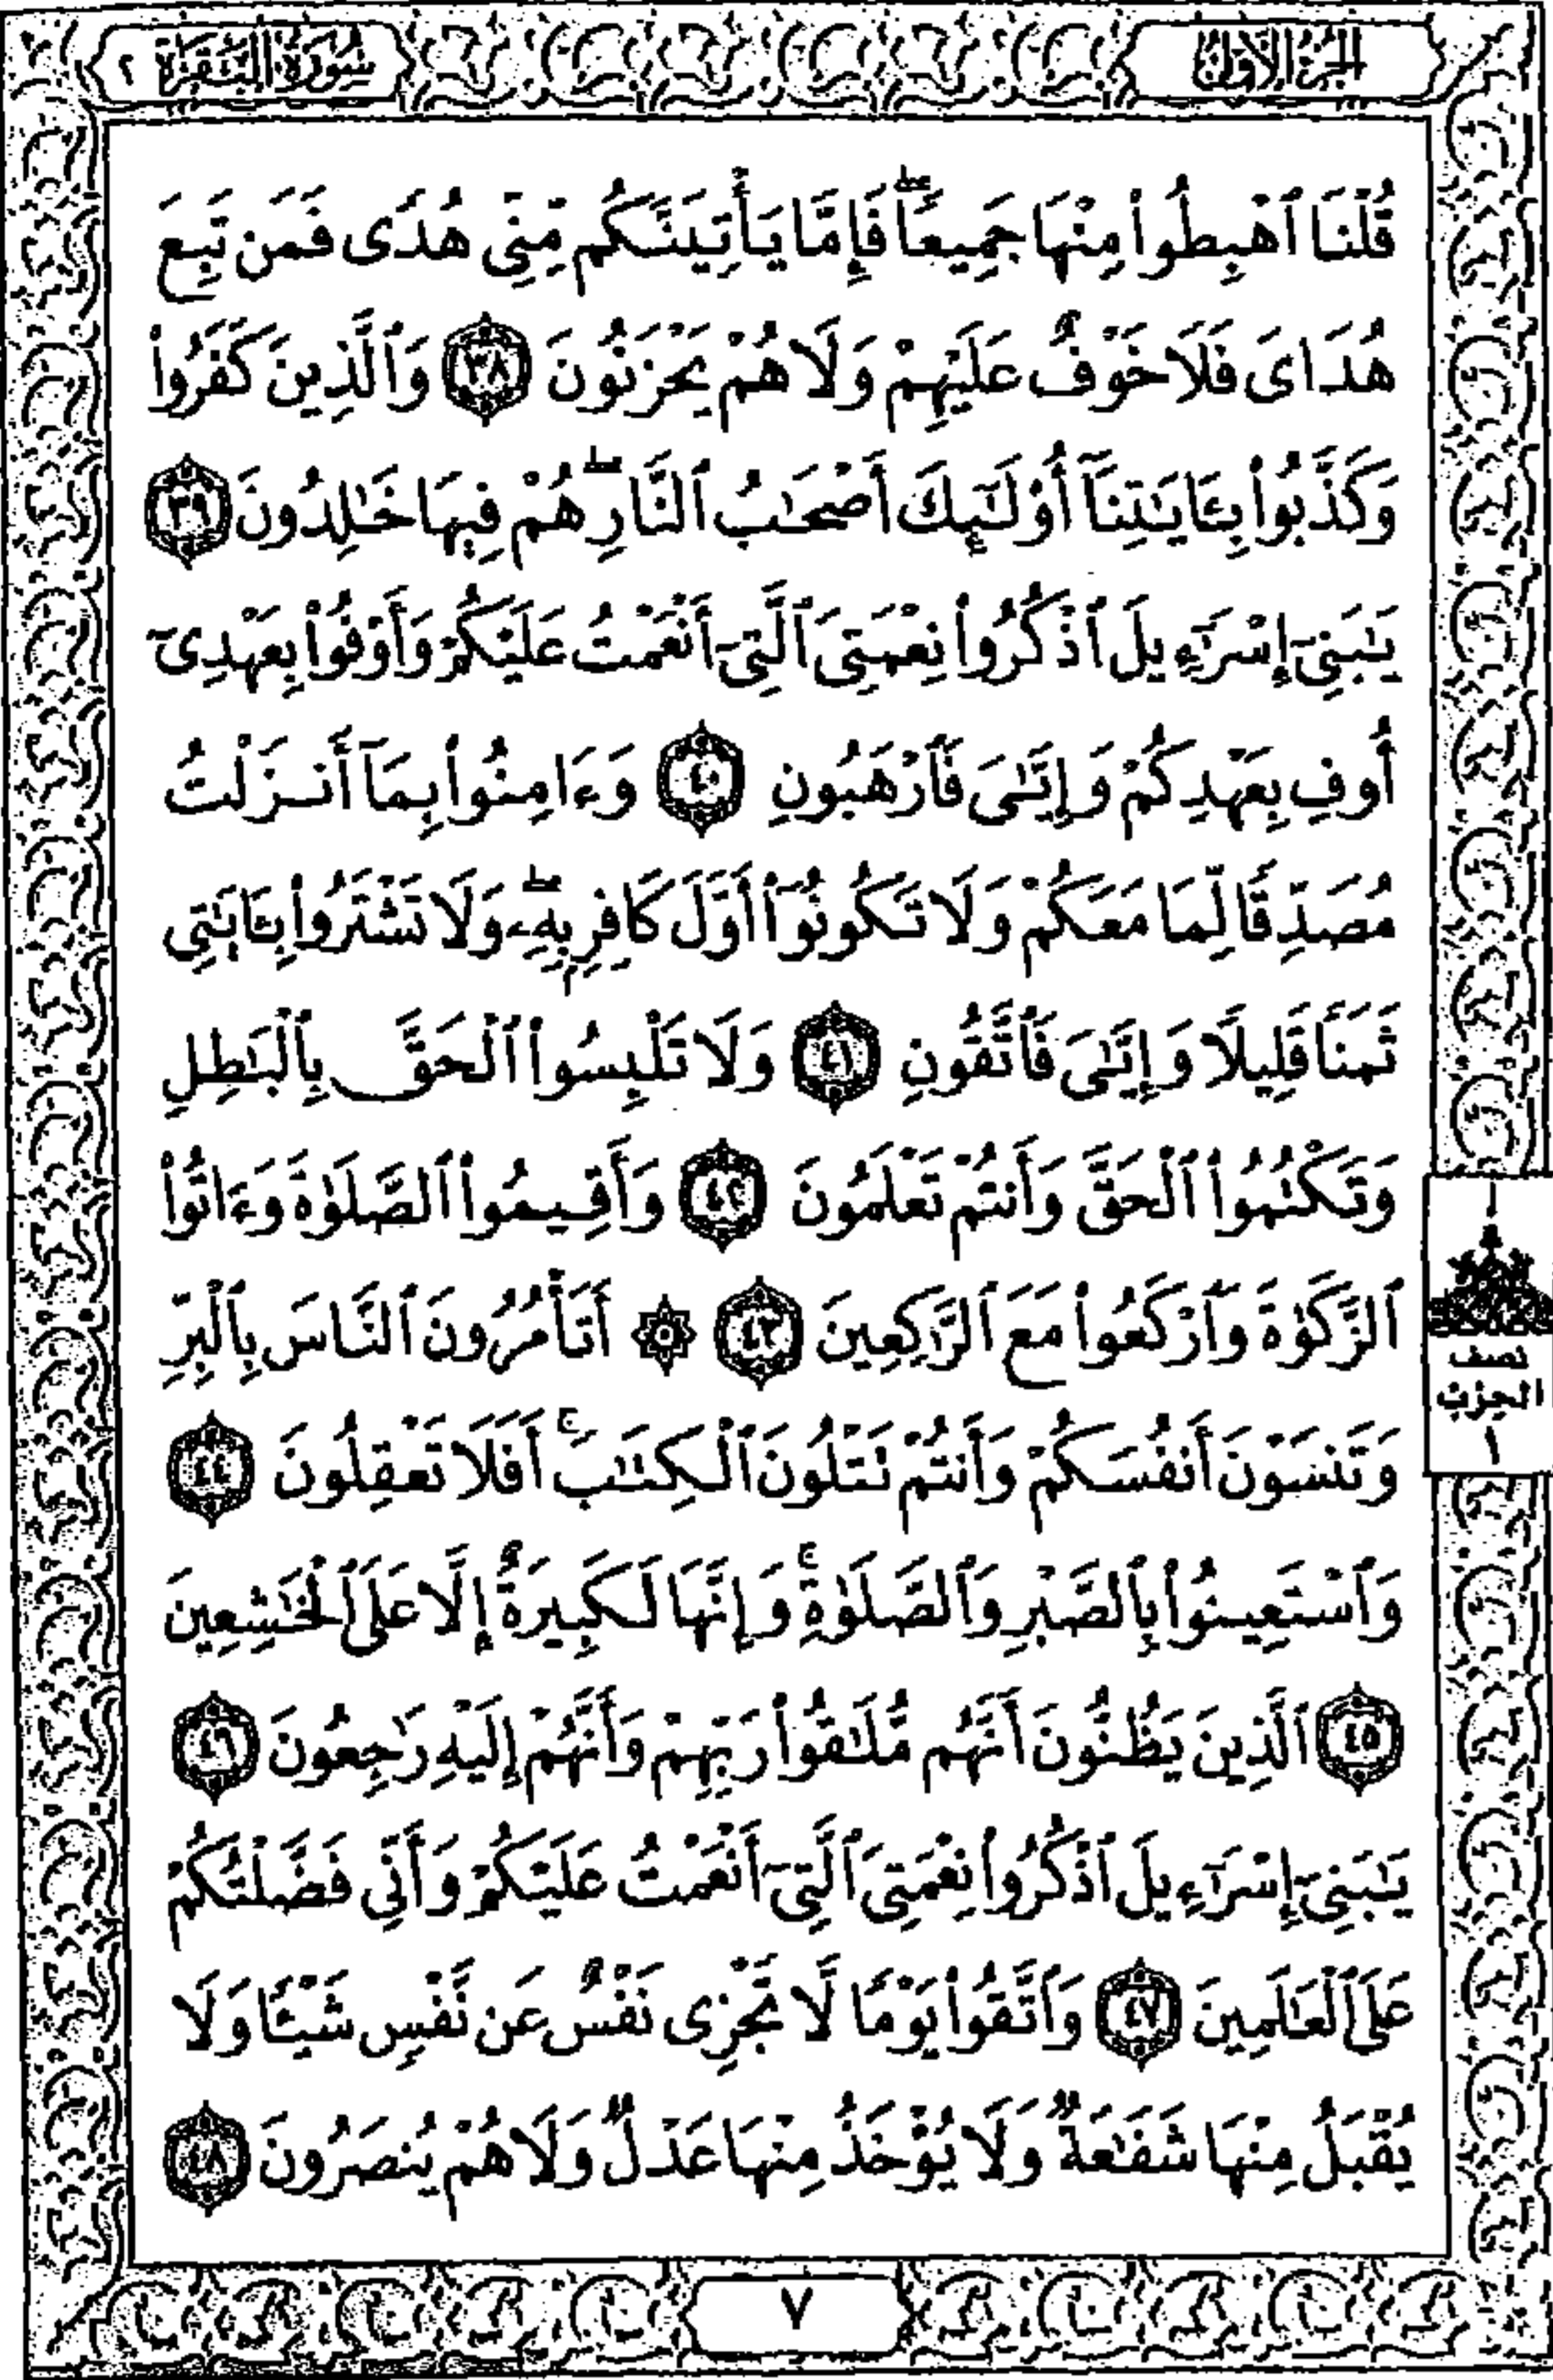 الجزء الأول
سورة البقرة ٢
قُلْنَا ٱهْبِطُوا۟ مِنْهَا جَمِيعًۭا ۖ فَإِمَّا يَأْتِيَنَّكُم مِّنِّى هُدًۭى فَمَن تَبِعَ
هُدَاىَ فَلَا خَوْفٌ عَلَيْهِمْ وَلَا هُمْ يَحْزَنُونَ ٣٨ وَٱلَّذِينَ كَفَرُوا۟
وَكَذَّبُوا۟ بِـَٔايَـٰتِنَآ أُو۟لَـٰٓئِكَ أَصْحَـٰبُ ٱلنَّارِ ۖ هُمْ فِيهَا خَـٰلِدُونَ ٣٩
يَـٰبَنِىٓ إِسْرَٰٓءِيلَ ٱذْكُرُوا۟ نِعْمَتِىَ ٱلَّتِىٓ أَنْعَمْتُ عَلَيْكُمْ وَأَوْفُوا۟ بِعَهْدِىٓ
أُوفِ بِعَهْدِكُمْ وَإِيَّـٰىَ فَٱرْهَبُونِ ٤٠ وَءَامِنُوا۟ بِمَآ أَنزَلْتُ
مُصَدِّقًۭا لِّمَا مَعَكُمْ وَلَا تَكُونُوٓا۟ أَوَّلَ كَافِرٍۭ بِهِۦ ۖ وَلَا تَشْتَرُوا۟ بِـَٔايَـٰتِى
ثَمَنًۭا قَلِيلًۭا وَإِيَّـٰىَ فَٱتَّقُونِ ٤١ وَلَا تَلْبِسُوا۟ ٱلْحَقَّ بِٱلْبَـٰطِلِ
وَتَكْتُمُوا۟ ٱلْحَقَّ وَأَنتُمْ تَعْلَمُونَ ٤٢ وَأَقِيمُوا۟ ٱلصَّلَوٰةَ وَءَاتُوا۟
ٱلزَّكَوٰةَ وَٱرْكَعُوا۟ مَعَ ٱلرَّٰكِعِينَ ٤٣ ۞ أَتَأْمُرُونَ ٱلنَّاسَ بِٱلْبِرِّ
نصف
الحزب
١
وَتَنسَوْنَ أَنفُسَكُمْ وَأَنتُمْ تَتْلُونَ ٱلْكِتَـٰبَ ۚ أَفَلَا تَعْقِلُونَ ٤٤
وَٱسْتَعِينُوا۟ بِٱلصَّبْرِ وَٱلصَّلَوٰةِ ۚ وَإِنَّهَا لَكَبِيرَةٌ إِلَّا عَلَى ٱلْخَـٰشِعِينَ
٤٥ ٱلَّذِينَ يَظُنُّونَ أَنَّهُم مُّلَـٰقُوا۟ رَبِّهِمْ وَأَنَّهُمْ إِلَيْهِ رَٰجِعُونَ ٤٦
يَـٰبَنِىٓ إِسْرَٰٓءِيلَ ٱذْكُرُوا۟ نِعْمَتِىَ ٱلَّتِىٓ أَنْعَمْتُ عَلَيْكُمْ وَأَنِّى فَضَّلْتُكُمْ
عَلَى ٱلْعَـٰلَمِينَ ٤٧ وَٱتَّقُوا۟ يَوْمًۭا لَّا تَجْزِى نَفْسٌ عَن نَّفْسٍۢ شَيْـًۭٔا وَلَا
يُقْبَلُ مِنْهَا شَفَـٰعَةٌۭ وَلَا يُؤْخَذُ مِنْهَا عَدْلٌۭ وَلَا هُمْ يُنصَرُونَ ٤٨
٧